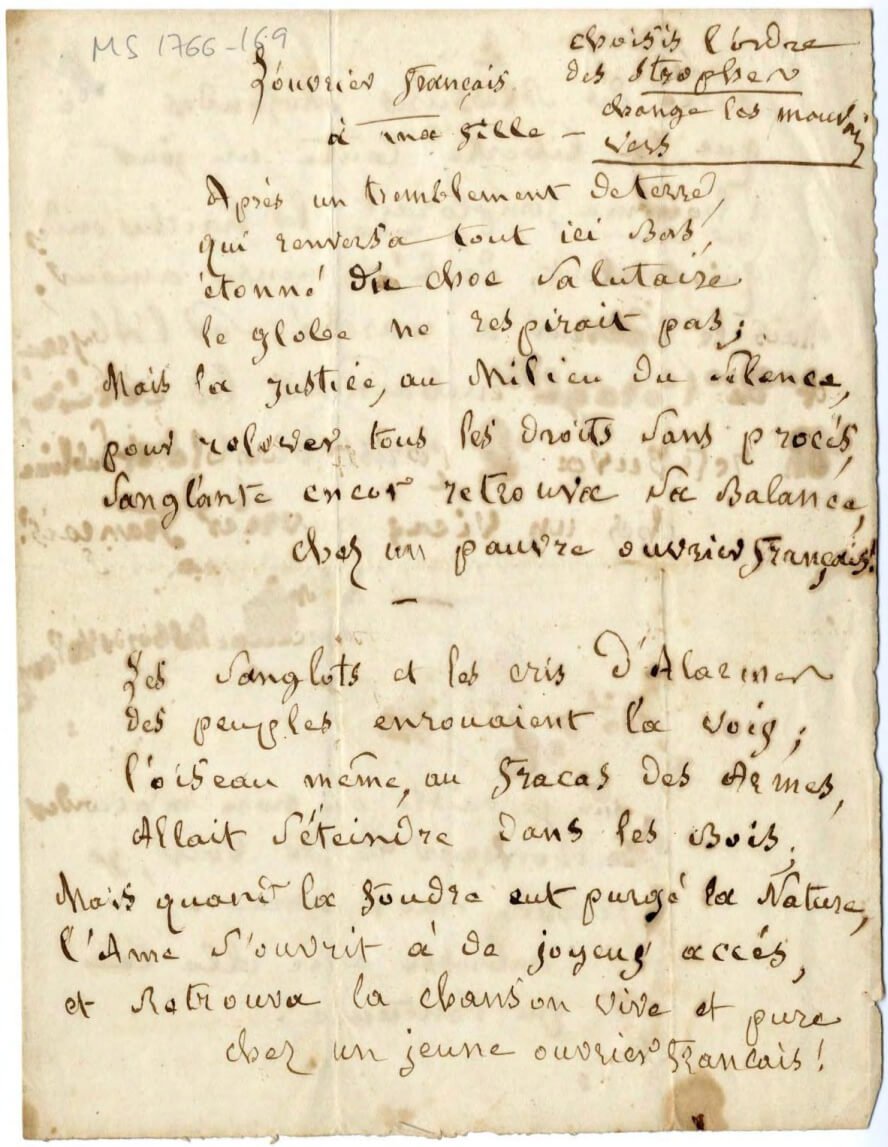 MS 1766-169
choisis l'ordre
des strophes
change les mauvais
vers
L'ouvrier français
à ma fille –
Après un tremblement de terre,
qui renversa tout ici Bas,
étonné du choc salutaire
le globe ne respirait pas ;
Mais la justice, au Milieu du silence,
pour relever tous les droits sans procès,
sanglante encor retrouva sa Balance,
chez un pauvre ouvrier français !
–
Les sanglots et les cris d'Alarmes
des peuples enrouaient la voix ;
l'oiseau même, au fracas des Armes,
Allait s'éteindre dans les Bois ;
Mais quand la foudre eut purgé la Nature,
l'Ame s'ouvrit à de joyeux accés,
et Retrouva la chanson vive et pure
chez un jeune ouvrier français !